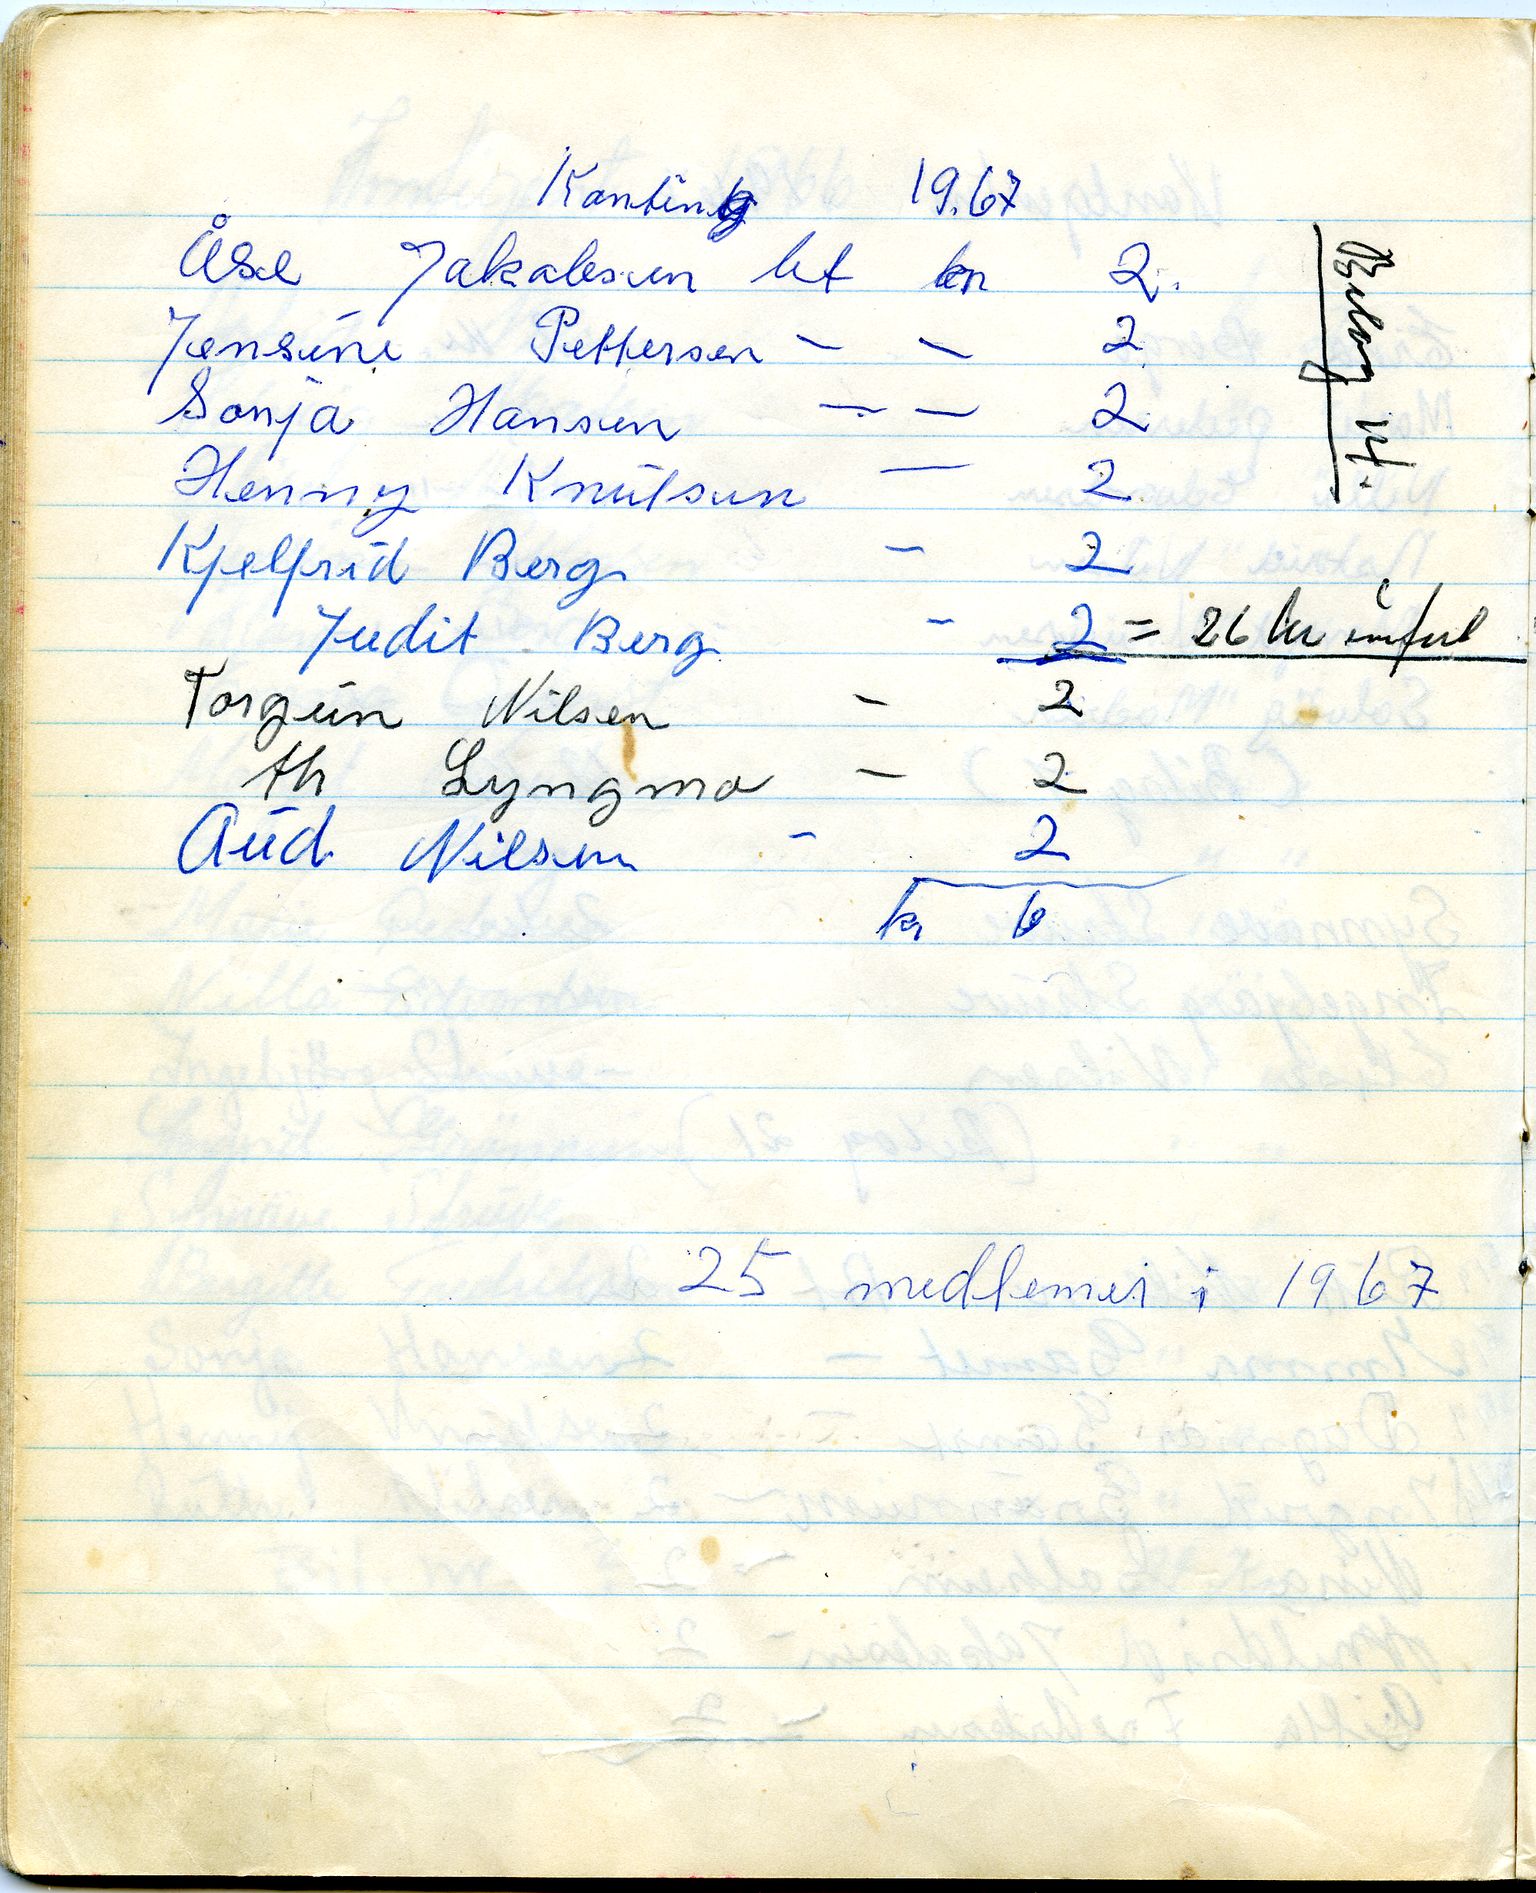 Konting 1967
Åse Jakobsen bt kr 2.
Jensine Pettersen - - 2
Sonja Hansen - - 2
Henny Knutsen - 2
Kjelfrid Berg - 2
Judit Berg - 2 = 26 kr inførl
Torgun Nilsen - 2
th Lyngmo - 2
Aud Nilsen - 2
kr 6
Bilag 14.
25 medlemer i 1967